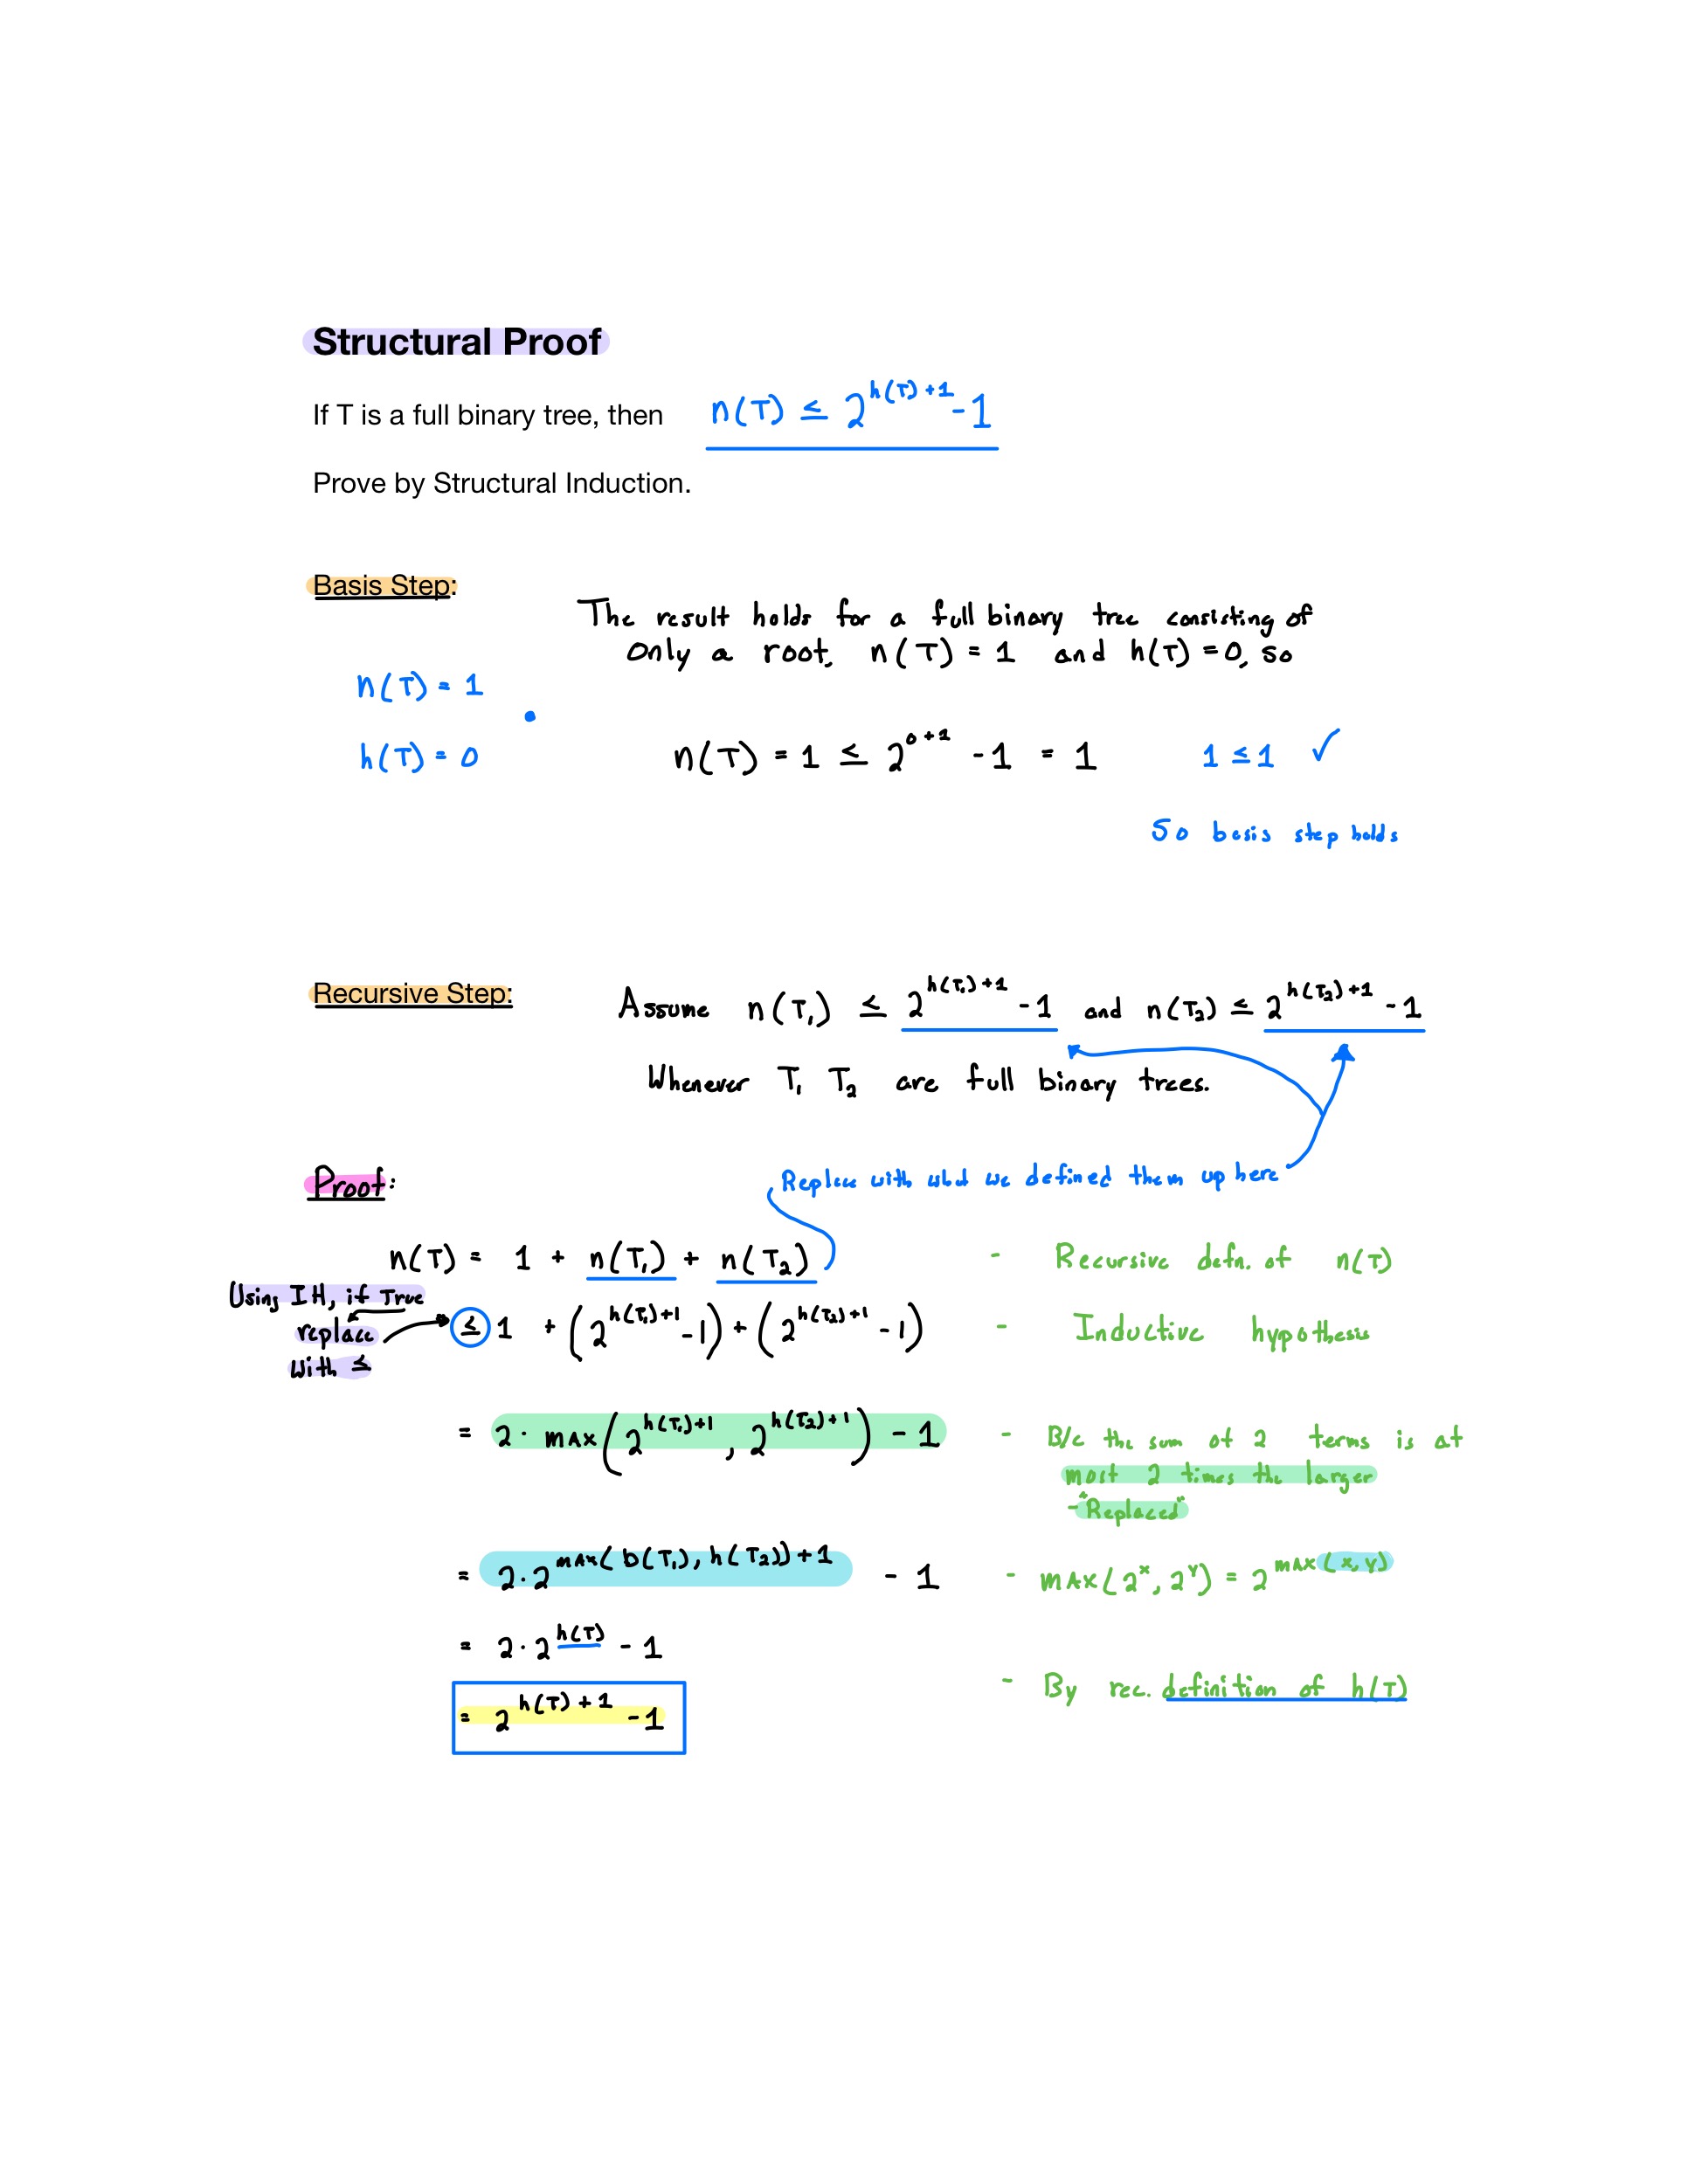 Structural Proof
If T is a full binary tree, then n(T) ≤ 2^{h(T)+1} - 1
Prove by Structural Induction.
Basis Step:
The result holds for a full binary tree consisting of
only a root. n(T) = 1 and h(T) = 0, so
n(T) = 1
h(T) = 0
n(T) = 1 ≤ 2^{0+1} - 1 = 1 1 ≤ 1 ✓
So basis step holds
Recursive Step: Assume n(T₁) ≤ 2^{h(T₁)+1} - 1 and n(T₂) ≤ 2^{h(T₂)+1} - 1
Whenever T₁ T₂ are full binary trees.
Proof:
Replace with what we defined them up here
n(T) = 1 + n(T₁) + n(T₂) - Recursive defn. of n(T)
Using IH, if True
replace
with ≤
≤ 1 + (2^{h(T₁)+1} - 1) + (2^{h(T₂)+1} - 1) - Inductive hypothesis
= 2 · max(2^{h(T₁)+1}, 2^{h(T₂)+1}) - 1 - B/c the sum of 2 terms is at
most 2 times the larger
- "Replaced"
= 2 · 2^{max(b(T₁), h(T₂))+1} - 1 - max(2^x, 2^y) = 2^{max(x,y)}
= 2 · 2^{h(T)} - 1
- By rec. definition of h(T)
= 2^{h(T)+1} - 1